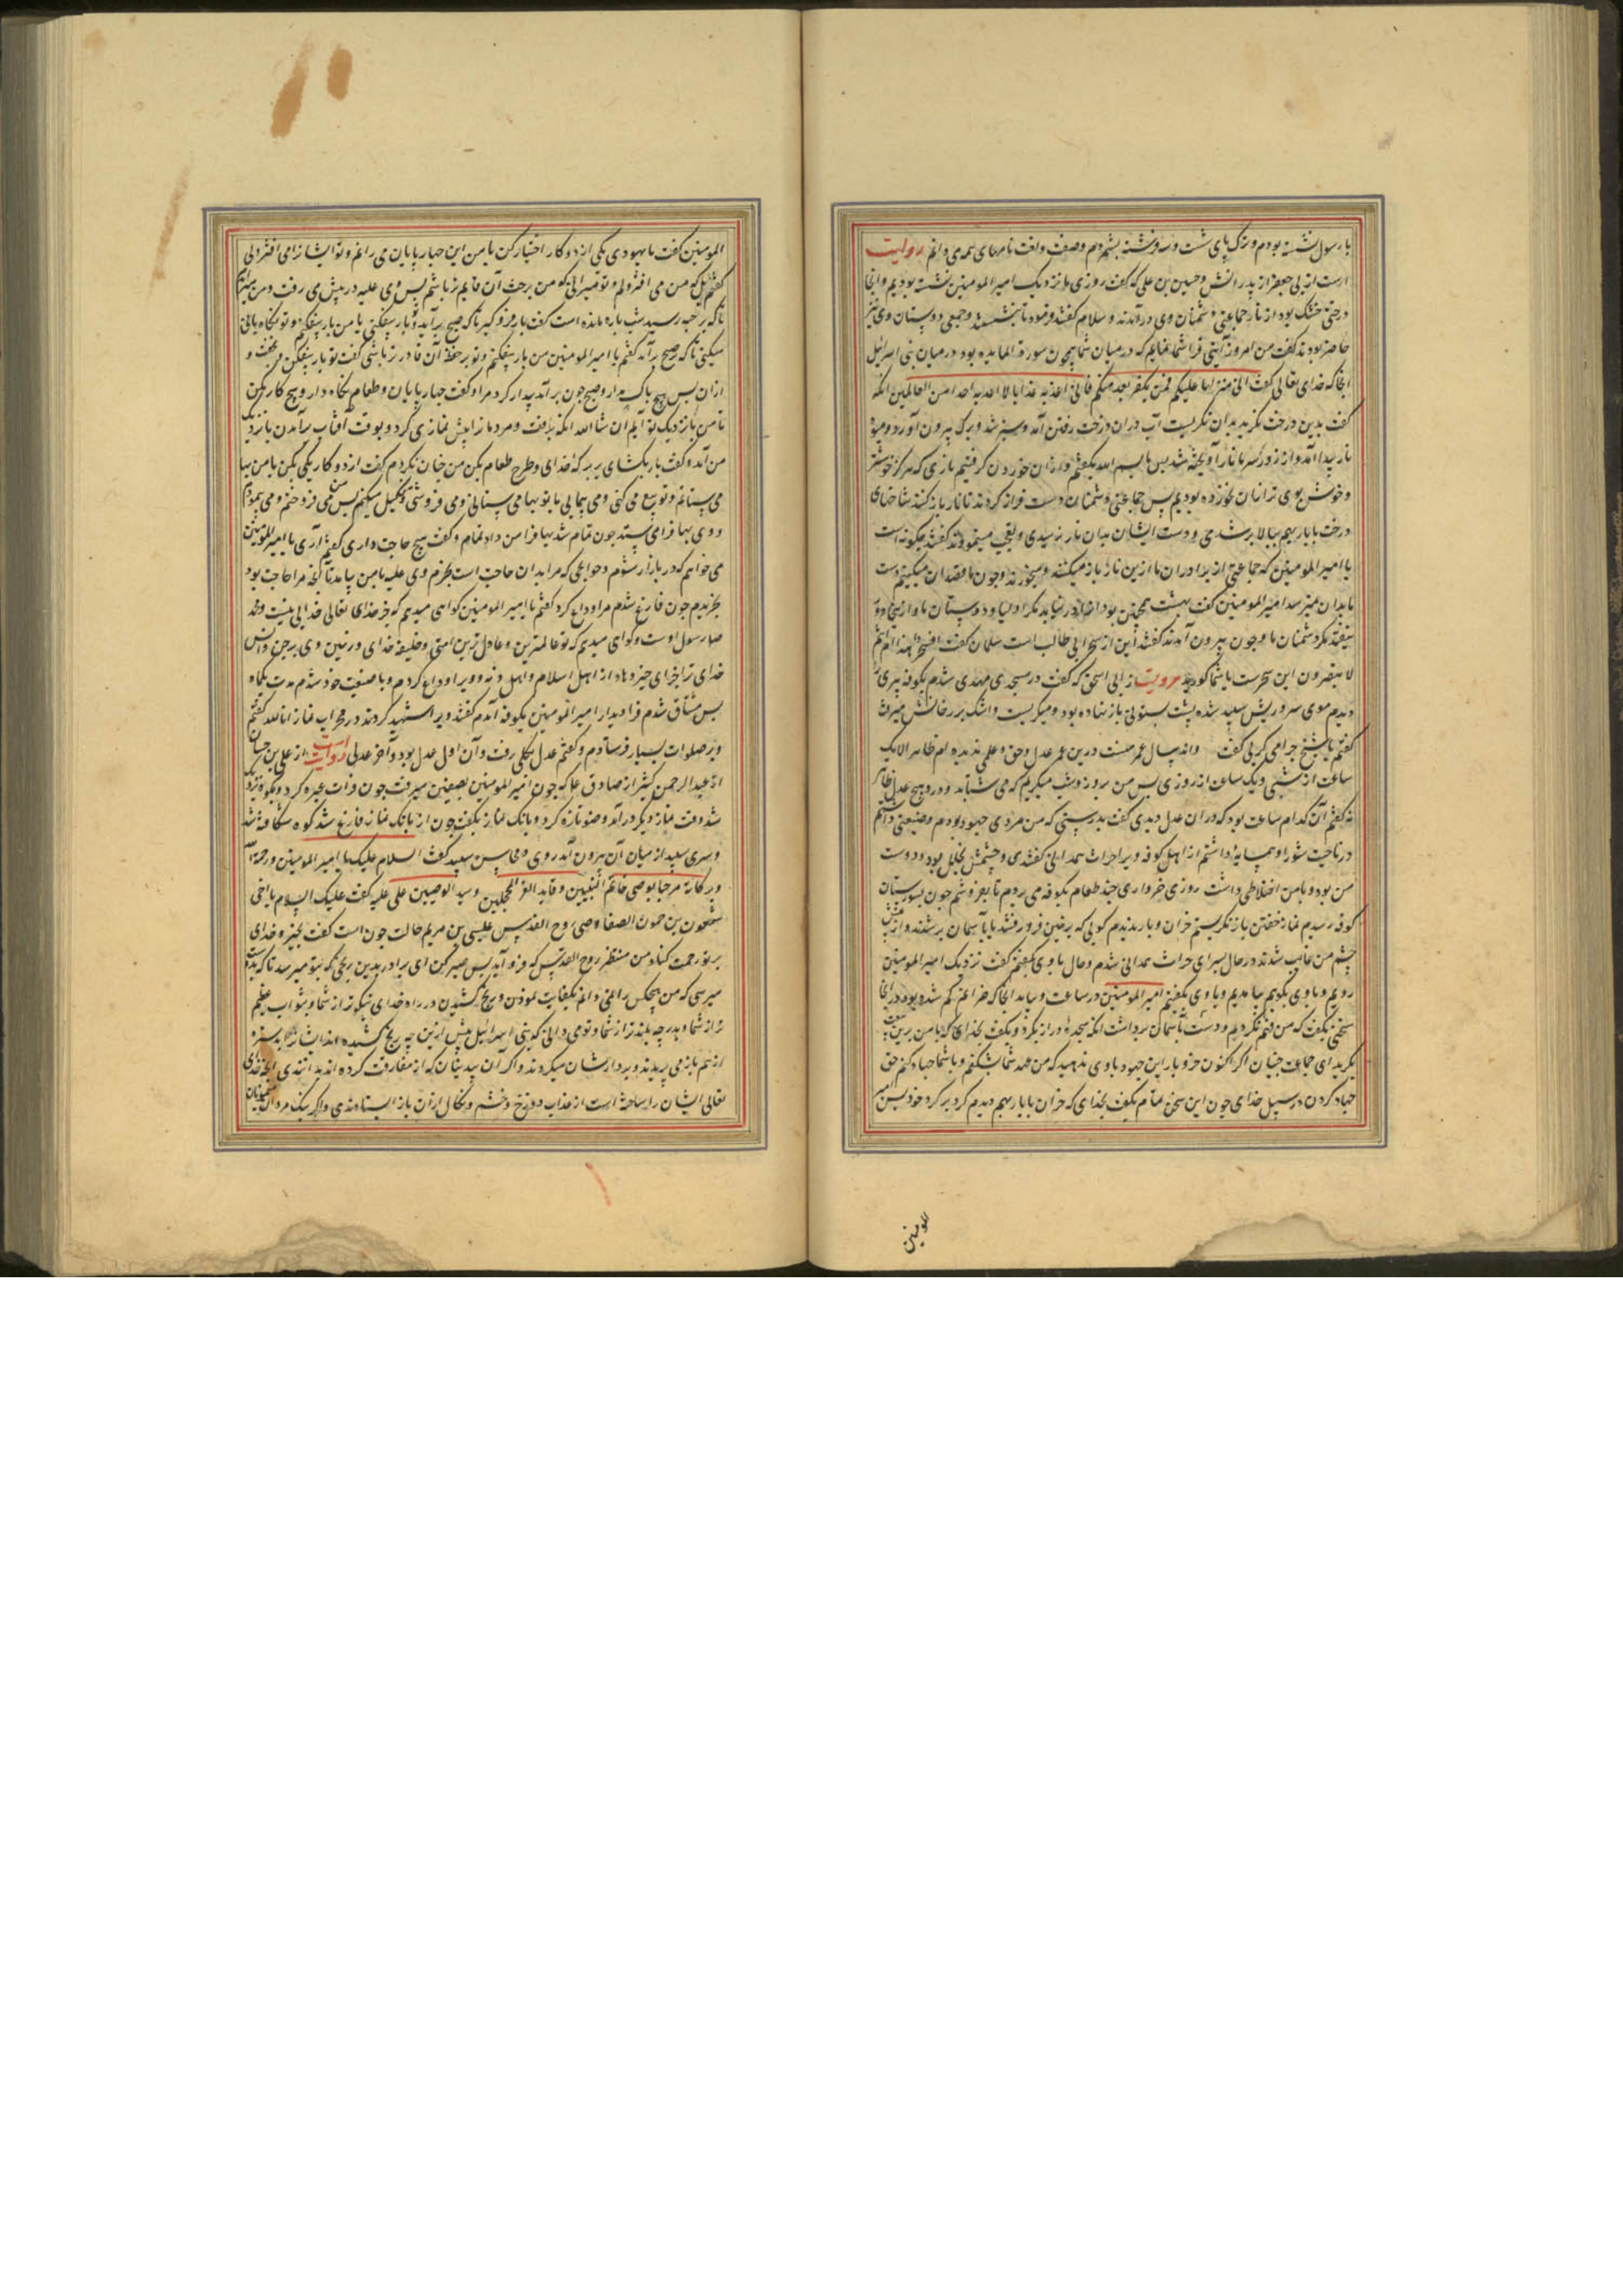 با رسول نشسته بودم و ترک پای شست و سه فرشته بشمردم وصفت ولغت نامهای همه می دانم روایت
است از ابی جعفر از پدرانش و حسین بن علی که گفت روزی ما نزدیک امیر المومنین نشسته بودیم و آنجا
درختی خشک بود از نار جماعتی دشمنان وی درآمدند و سلام گفتند و فرمود تا بنشستند و جمعی دوستان وی نیز
حاضر بودند گفت من امروز آیتی فرا شما نمایم که در میان شما همچون سورة المایده بود در میان بنی اسرائیل
آنجا که خدای تعالی گفت انی منزلها علیکم فمن یکفر بعد منکم فانی اعذبه عذابا لا اعذبه احدا من العالمین آنکه
گفت بدین درخت نگرید بدان نگریست آب در آن درخت رفتن آمد و سبز شد و برگ بیرون آورد و میوه
نار پیدا آمد و از زور سر ما نار آویخته شد پس ما بسم الله بگفتیم و از آن خوردن گرفتیم ناری که هرگز خوشتر
و خوش بوی تر از آن نخورده بودیم پس جماعتی دشمنان دست فراز کردند تا نار باز کنند شاخهای
درخت باباریهم ببالا بر شدی و دست ایشان بدان نار نرسیدی و تعجب مینمودند گفتند چگونه است
یا امیر المومنین که جماعتی از برادران ما ازین نارها باز میکنند و میخورند و چون ما قصد آن میکنیم دست
ما بدان نمیرسد امیر المومنین گفت بهشت همچنین بود اندر نیابد مگر اولیا و دوستان ما و از آنجا دور
نیفتد مگر دشمنان ما و چون بیرون آمدند گفتند این از سحر ابی طالب است سلمان گفت افسحر هذا ام انتم
لا تبصرون این سحرست یا شما کورید مرویست از ابی اسحق که گفت در مسجدی مهدی شدم بکوفه پیری را
دیدم موی سر و ریش سپید شده پشت بستونی باز نهاده بود و میگریست و اشک بر رخانش میرفت
گفتم یا شیخ چرا می گریی گفت و اند سال عمر منست درین عمر عدل و حق و علمی ندیده ام ظاهر الا یک
ساعت از شبی و یک ساعت از روزی پس من بروز و شب میگریم
نه گفتم آن کدام ساعت بود که در آن عدل دیدی گفت بدرستی که من مردی جهود بودم و ضیعتی داشتم
در ناحیت شورا و همسایه داشتم از اهل کوفه ویرا حراث همدانی گفتندی و چشمش بخلل بود و دوست
من بود و با من اختلاطی داشت روزی خرواری چند طعام بکوفه می بردم تا بفروشم چون بشورستان
کوفه رسیدم نماز خفتن باز نگریستم خران و بار ندیدم گویی که بزمین فرو رفتند یا بآسمان بر شدند و از پیش
چشم من غایب شدند در حال بسرای حراث همدانی شدم و حال با وی بگفتم گفت نزدیک امیر المومنین
رویم و با وی بگوییم بیامدیم و با وی بگفتیم امیر المومنین در ساعت و بیامد آنجا که خر از من گم شده بود در آنجا
سخنی بگفت که من فهم نکردیم و دست بآسمان برداشت آنکه سجده دراز بکرد و بگفت بخدای که با من برین بیعت
بکردید ای جماعت جنیان اگر اکنون خر و بار این جهود با وی ندهید که من عهد شما بشکنم و با شما جهاد کنم حق
جهاد کردن در سبیل خدای چون این سخن تمام بگفت بخدای که خران بابارهم دیدم گرد بر گرد خود پس امیر
للومنین
المومنین گفت یا یهودی یکی از دو کار اختیار کن یا من این چهارپایان می رانم و تو ایشانرا می افتر الی
گفتم بل که من می افترولم و تو میرانی که من برحث آن قایم تر باشم پس وی علیه در پیش می رفت و من
تا که برحبه رسید شب پاره مانده است گفت بار فرو گیر تا که صبح برآید و تو بار بیفکنی یا من بار بیفکنم و تو نگاه بانی
میکنی تا که صبح برآید گفتم یا امیر المومنین من بار بیفکنم و تو بر حفظ آن قادر تر باشی گفت تو بار بیفکن و بخفت و
از آن پس هیچ باک مدار و صبح چون برآمد بیدار کرد مرا و گفت چهارپایان و طعام نگاه دار و هیچ کار مکن
تا من بازنزدیک تو آیم ان شا الله آنکه برفت و مردمانرا پیش نمازی کرد و بوقت آفتاب برآمدن بازنزدیک
من آمد و گفت بار بگشای بر برکه خدای و طرح طعام بکن من چنان بکردم گفت از دو کار یکی بکن یا من بها
می ستانم و تو بیع می کنی و می پیمایی یا تو بها می ستانی و می فروشی و کیل میکنم پس من می فروختم و می پیمودم
و وی بها فرا می ستد چون تمام شد بها فرا من داد تمام و گفت هیچ حاجت داری گفتم آری یا امیر المومنین
می خواهم که در بازار شوم و حوایجی که مرا بدان حاجت است بخرم وی علیه با من بیامد تا آنچه مرا حاجت بود
بخریدم چون فارغ شدم مرا وداع کرد گفتم یا امیر المومنین گواهی میدهم که جز خدای تعالی خدایی نیست و محمد
صلی رسول اوست و گواهی میدهم که تو عالمترین و عادل ترین امتی و خلیفه خدای در زمین وی بر جن و انس
خدای ترا جزای خیر دهاد از اهل اسلام و اهل ذمه و ویرا وداع کردم و با ضیعت خود شدم مدت یکماه
پس مشتاق شدم فرا دیدار امیر المومنین بکوفه آمدم گفتند ویرا شهید کردند در محراب نماز انا لله گفتم
و بر صلوات بسیار فرستادم و گفتم عدل بکلی رفت و آن اول عدل بود و آخر عدلی روایت است از علی بن حسان
از عبد الرحمن کثیر از صادق علیه که چون امیر المومنین بصفین میرفت چون فرات عبره کرد و بکوه نزدیک
شد وقت نماز دیگر درآمد وضو تازه کرد و بانگ نماز بگفت چون از بانگ نماز فارغ شد کوه شکافته شد
و سری سپید از میان آن بیرون آمد روی و محاسن سپید گفت السلام علیک یا امیر المومنین و رحمة الله
و برکاته مرحبا بوصی خاتم النبیین و قاید الغر المحجلین و سید الوصیین علی علیه گفت علیک السلام یا اخی
شمعون بن حمون الصفا وصی روح القدس عیسی بن مریم حالت چون است گفت بخیر و خدای
بر تو رحمت کناد من منتظر روح القدس که فرو آید پس صبر کن ای برادر بدین رنجی که بتو میرسد تا که بدوست
میرسی که من هیچکس را نمی دانم
ترا از شما و بدرجه بلندتر از شما و تو می دانی که بنی اسرائیل پیش ازین چه رنج کشیده اند
از هم باز می بریدند و بر دارشان میکردند و اگر آن بدبینان که از مفارقت کرده اند بدانندی آنچه خدای
تعالی ایشان را ساخته است از عذاب دوزخ و خشم و نکال از آن باز ایستادندی و اگر نیک مردان